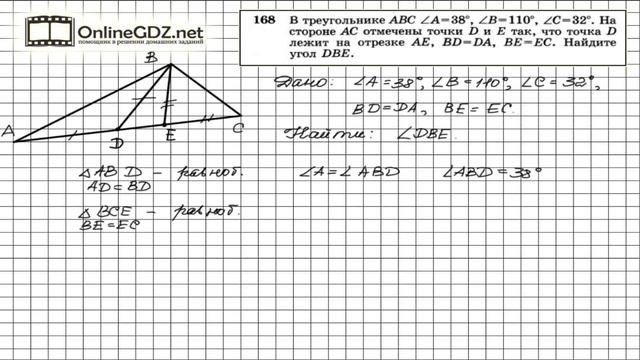 OnlineGDZ.net
помощник в решении домашних заданий
168 В треугольнике ABC ∠A=38°, ∠B=110°, ∠C=32°. На
стороне AC отмечены точки D и E так, что точка D
лежит на отрезке AE, BD=DA, BE=EC. Найдите
угол DBE.
Дано: ∠A=38°, ∠B=110°, ∠C=32°,
BD=DA, BE=EC.
Найти: ∠DBE.
B
A
D
E
C
△ABD - равноб.
AD=BD
∠A=∠ABD ∠ABD=38°
△BCE - равноб.
BE=EC